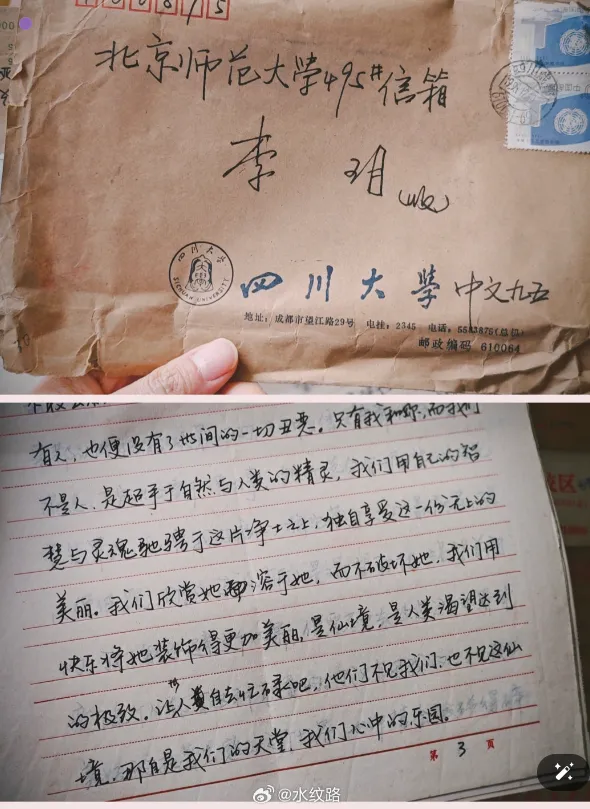 100875
北京师范大学495#信箱
李玥(收)
四川大学
SICHUAN UNIVERSITY
四川大学 中文九五
地址：成都市望江路29号 电挂：2345 电话：5583875(总机)
邮政编码 610064
有人，也便没有了世间的一切丑恶。只有我和你，而我们
不是人，是超乎于自然与人类的精灵，我们用自己的智
慧与灵魂驰骋于这片净土之上，独自享受这一份无上的
美丽。我们欣赏她融溶于她，而不破坏她，我们用
快乐将她装饰得更加美丽，是仙境，是人类渴望达到
的极致。让人类自去忙碌吧，他们不见我们，也不见这仙
境，那自是我们的天堂，我们心中的乐园。
第 3 页
@水纹路